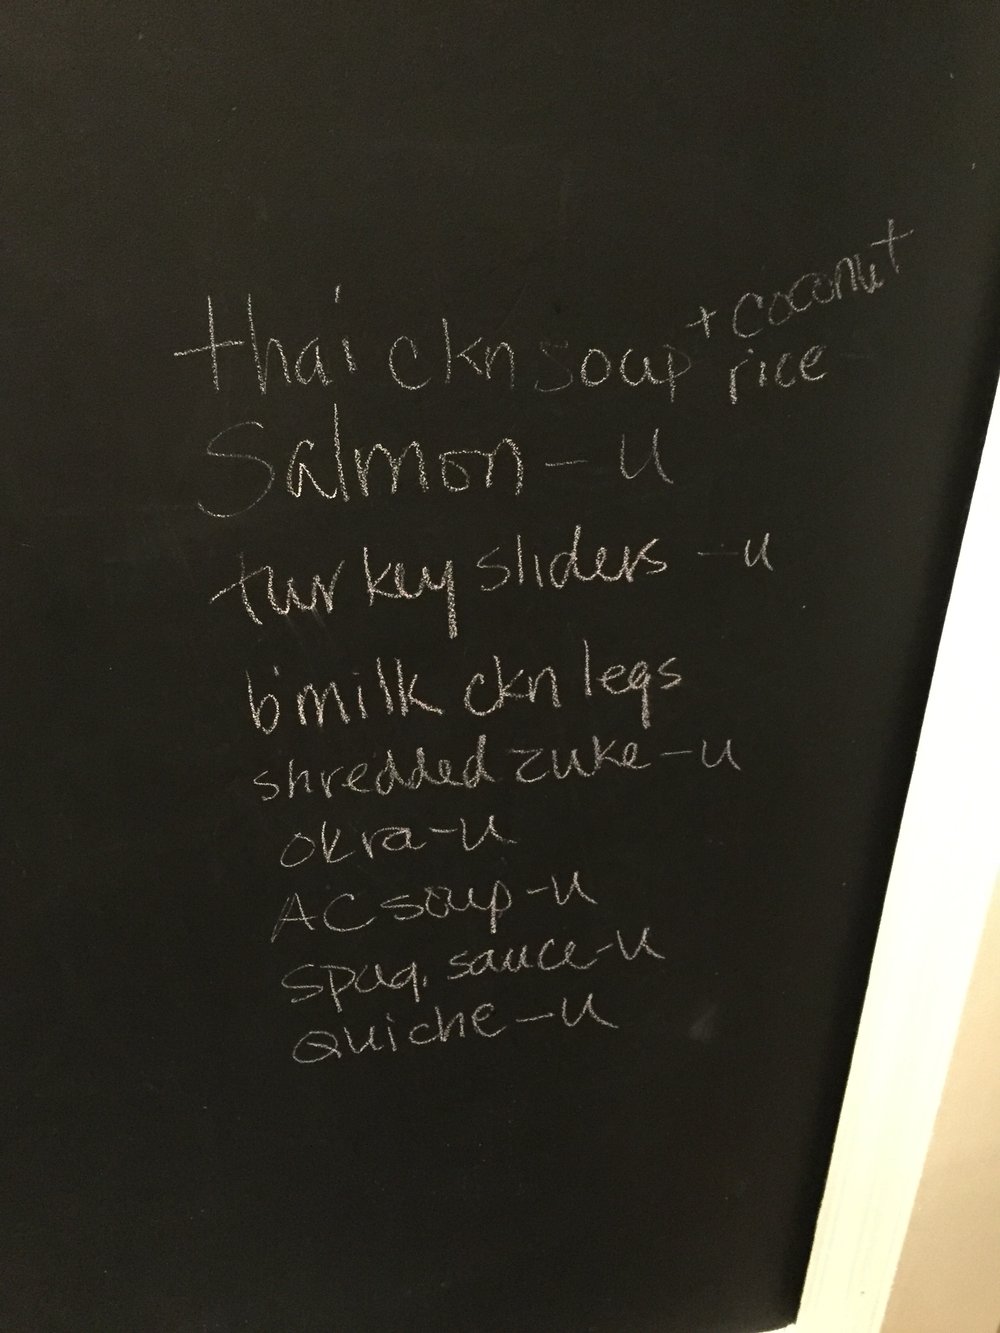 thai ckn soup + coconut rice
Salmon - u
turkey sliders - u
b'milk ckn legs
shredded zuke - u
okra - u
AC soup - u
spag. sauce - u
Quiche - u